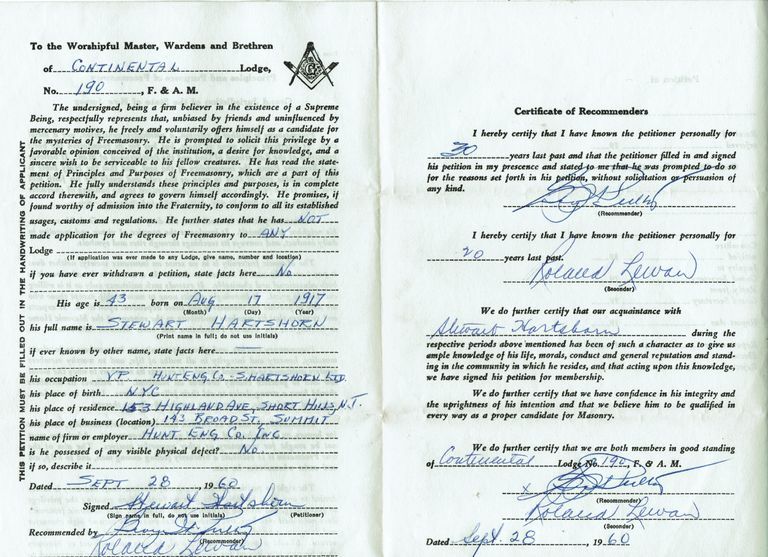 To the Worshipful Master, Wardens and Brethren
of CONTINENTAL Lodge,
No. 190, F. & A. M.
The undersigned, being a firm believer in the existence of a Supreme
Being, respectfully represents that, unbiased by friends and uninfluenced by
mercenary motives, he freely and voluntarily offers himself as a candidate for
the mysteries of Freemasonry. He is prompted to solicit this privilege by a
favorable opinion conceived of the institution, a desire for knowledge, and a
sincere wish to be serviceable to his fellow creatures. He has read the state-
ment of Principles and Purposes of Freemasonry, which are a part of this
petition. He fully understands these principles and purposes, is in complete
accord therewith, and agrees to govern himself accordingly. He promises, if
found worthy of admission into the Fraternity, to conform to all its established
usages, customs and regulations. He further states that he has NOT
made application for the degrees of Freemasonry to ANY
Lodge
(If application was ever made to any Lodge, give name, number and location)
if you have ever withdrawn a petition, state facts here No
His age is 43 born on Aug 17 1917
(Month) (Day) (Year)
his full name is STEWART HARTSHORN
(Print name in full; do not use initials)
if ever known by other name, state facts here
his occupation VP HUNT ENG. CO. S. HARTSHORN LTD.
his place of birth NYC
his place of residence 153 HIGHLAND AVE, SHORT HILLS, N.J.
his place of business (location) BROAD ST. SUMMIT
name of firm or employer HUNT ENG CO. INC.
is he possessed of any visible physical defect? No
if so, describe it
Dated SEPT 28, 1960
Signed Stewart Hartshorn
(Sign name in full, do not use initials) (Petitioner)
Recommended by
(Recommender)
Roland Lewan
THIS PETITION MUST BE FILLED OUT IN THE HANDWRITING OF APPLICANT
Certificate of Recommenders
I hereby certify that I have known the petitioner personally for
30 years last past and that the petitioner filled in and signed
his petition in my presence and stated to me that he was prompted to do so
for the reasons set forth in his petition, without solicitation or persuasion of
any kind.
(Recommender)
I hereby certify that I have known the petitioner personally for
20 years last past.
Roland Lewan
(Seconder)
We do further certify that our acquaintance with
Stewart Hartshorn during the
respective periods above mentioned has been of such a character as to give us
ample knowledge of his life, morals, conduct and general reputation and stand-
ing in the community in which he resides, and that acting upon this knowledge,
we have signed his petition for membership.
We do further certify that we have confidence in his integrity and
the uprightness of his intention and that we believe him to be qualified in
every way as a proper candidate for Masonry.
We do further certify that we are both members in good standing
of Continental Lodge No. 190, F. & A. M.
x
(Recommender)
Roland Lewan
(Seconder)
Dated Sept. 28 1960